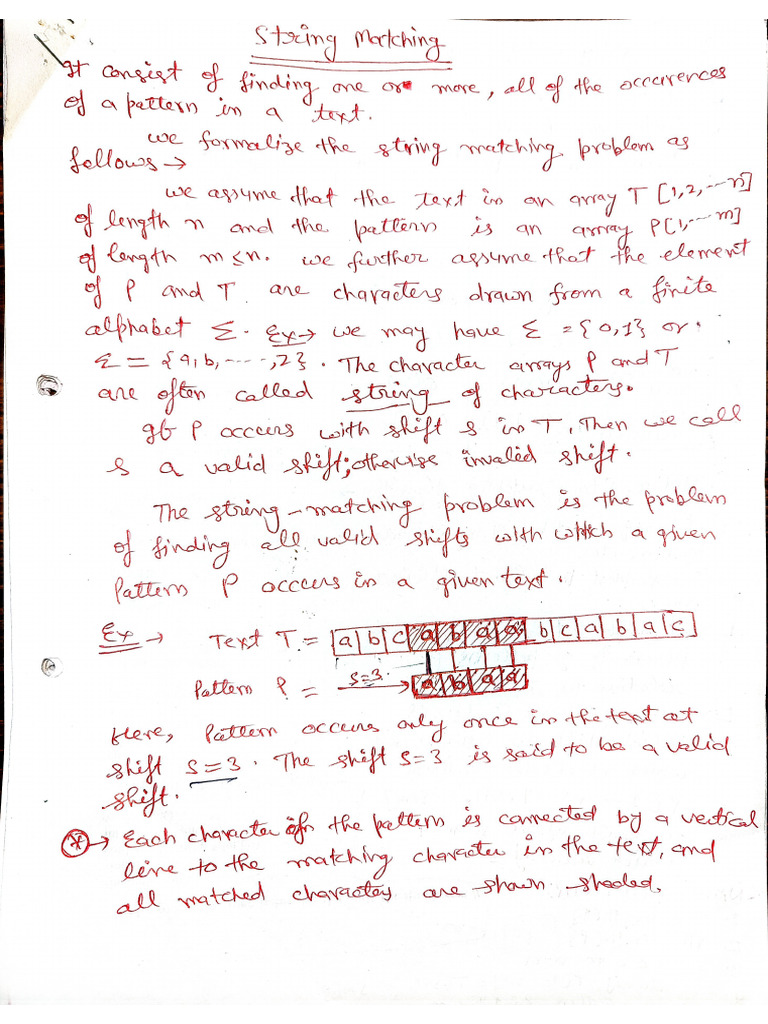 String Matching
It consist of finding one or more, all of the occurences
of a pattern in a text.
we formalize the string matching problem as
follows →
we assume that the text in an array T [1,2,---n]
of length n and the pattern is an array P[1,---m]
of length m ≤ n. we further assume that the element
of P and T are characters drawn from a finite
alphabet Σ. Ex→ we may have Σ = {0,1} or
Σ = {a,b,----,z}. The character arrays P and T
are often called string of characters.
If P occurs with shift s in T, Then we call
s a valid shift; otherwise invalid shift.
The string-matching problem is the problem
of finding all valid shifts with which a given
Pattern P occcurs in a given text.
Ex → Text T = a b c a b a a b c a b a c
s=3
Pattern P = a b a a
Here, Pattern occurs only once in the text at
shift s=3. The shift s=3 is said to be a valid
shift.
* → Each character of the pattern is connected by a vertical
line to the matching character in the text, and
all matched characters are shown shaded.